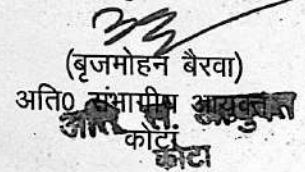 (बृजमोहन बैरवा)
अति0 संभागीय आयुक्त
कोटा
कोटा